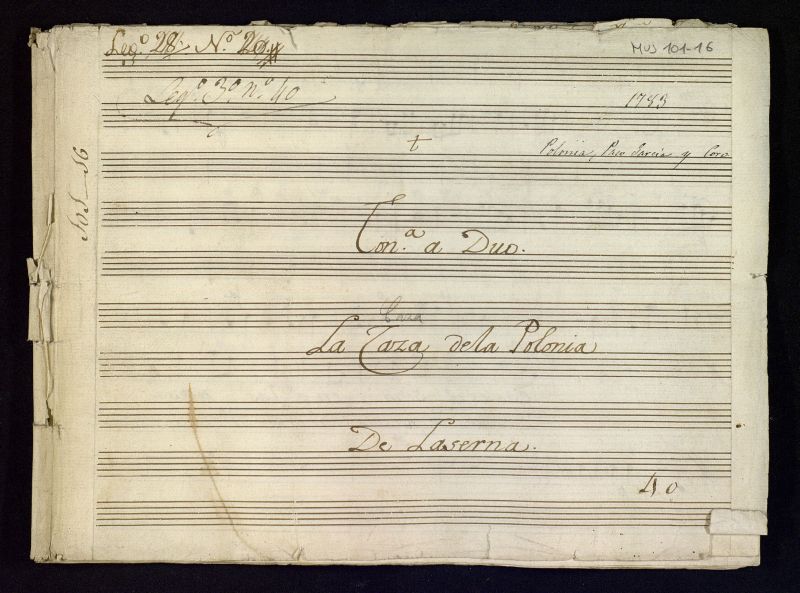 Leg.º 28. N.º 26.
MUS 101-16
Leg.º 3.º n.º 40
1783
Polonia, Paco Garcia y Coro
Ton.ª a Duo.
Caza
La Taza dela Polonia
De Laserna.
40